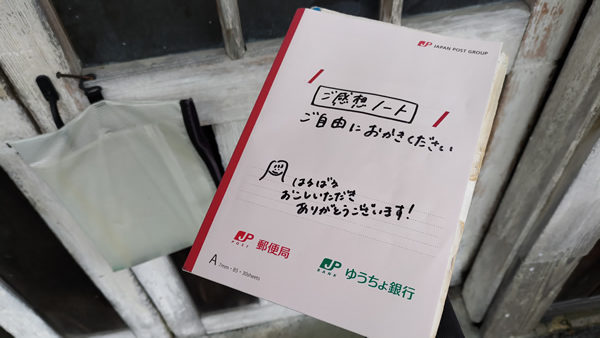 JP JAPAN POST GROUP
ご感想ノート
ご自由におかきください
はるばる
おこしいただき
ありがとうございます!
JP POST 郵便局
JP BANK ゆうちょ銀行
A 7mm・B5・30sheets